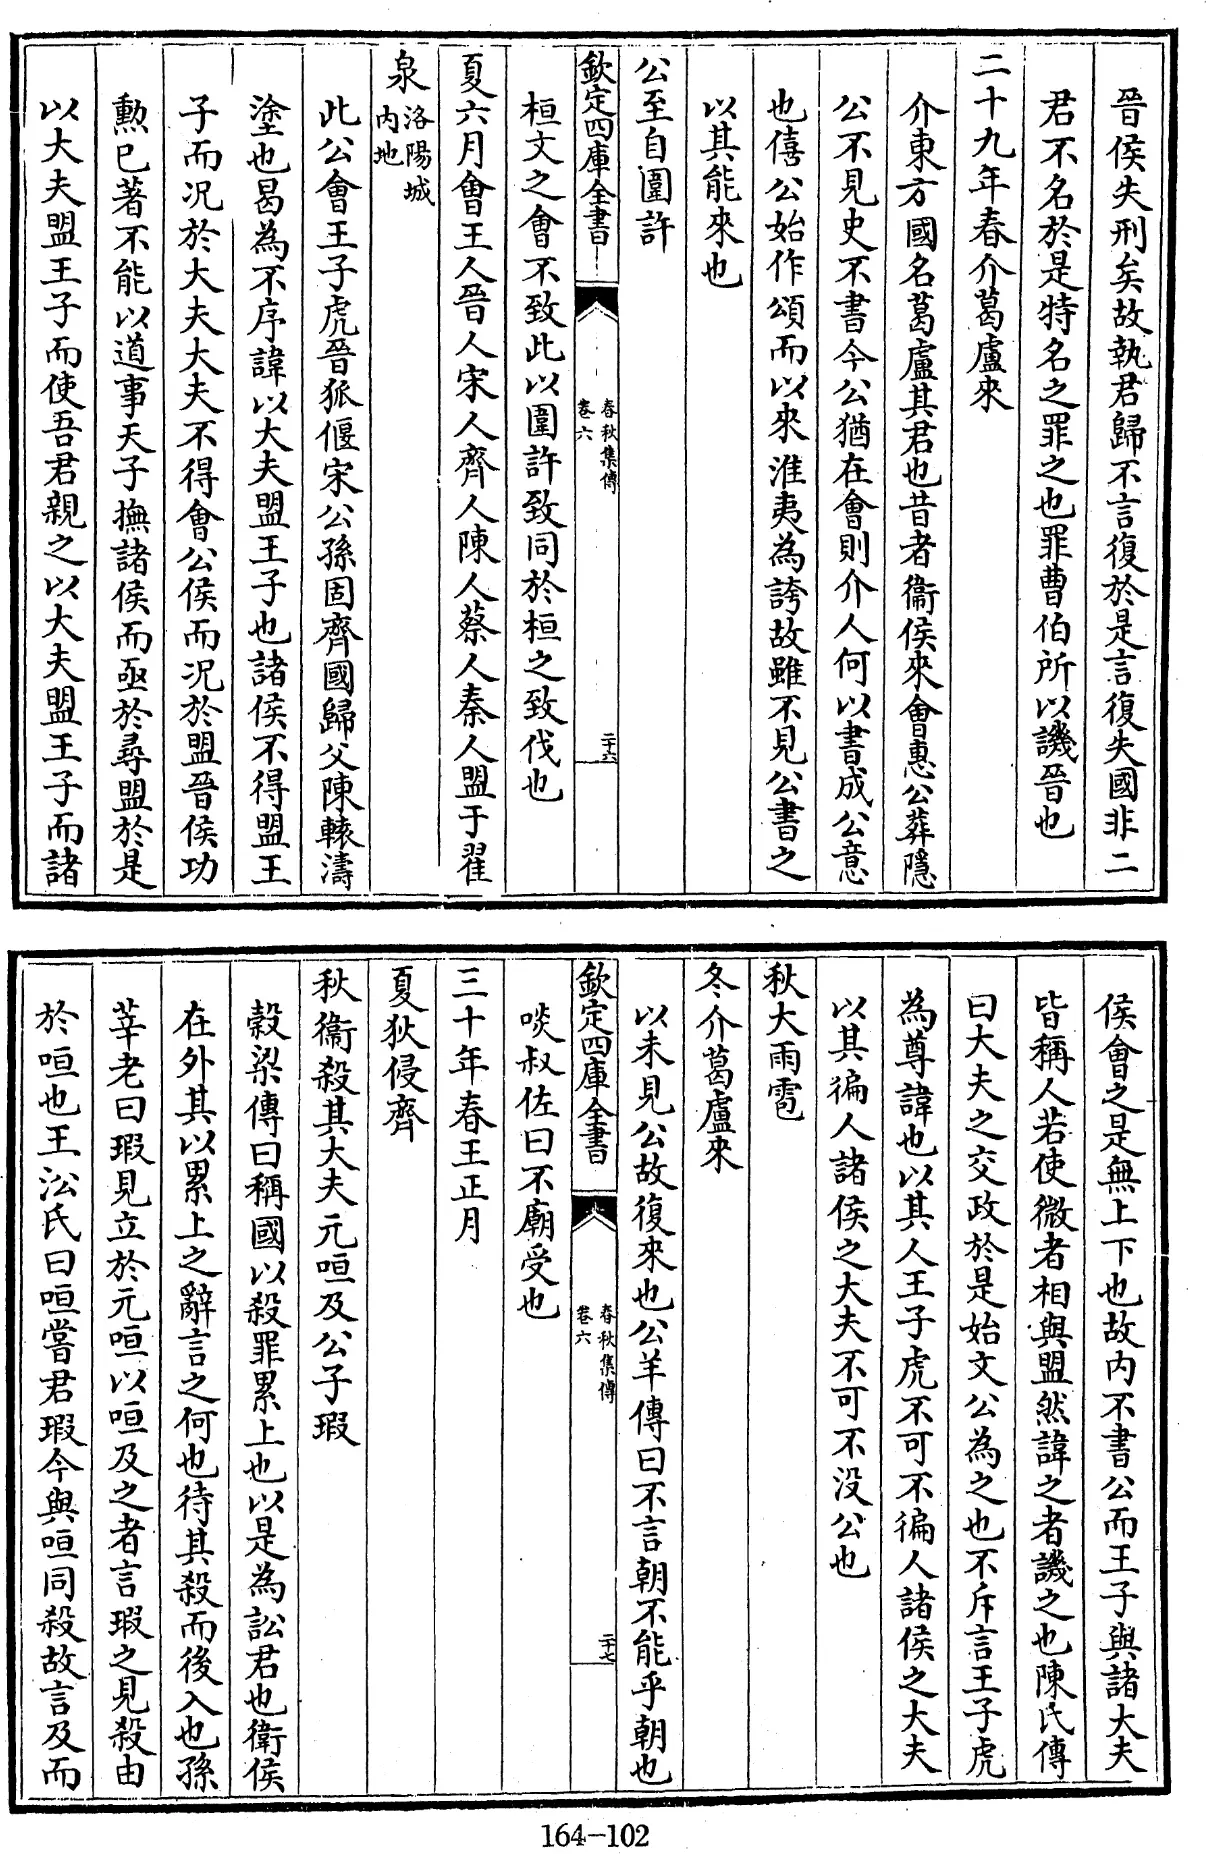 晉侯失刑矣故執君歸不言復於是言復失國非二
君不名於是特名之罪之也罪曹伯所以譏晉也
二十九年春介葛盧來
介東方國名葛盧其君也昔者衞侯來會惠公葬隱
公不見史不書今公猶在會則介人何以書成公意
也僖公始作頌而以來淮夷為誇故雖不見公書之
以其能來也
公至自圍許
欽定四庫全書
春秋集傳
卷六
二十六
桓文之會不致此以圍許致同於桓之致伐也
夏六月會王人晉人宋人齊人陳人蔡人秦人盟于翟
泉洛陽城
內地
此公會王子虎晉狐偃宋公孫固齊國歸父陳轅濤
塗也曷為不序諱以大夫盟王子也諸侯不得盟王
子而况於大夫大夫不得會公侯而况於盟晉侯功
勲已著不能以道事天子撫諸侯而亟於尋盟於是
以大夫盟王子而使吾君親之以大夫盟王子而諸
侯會之是無上下也故内不書公而王子與諸大夫
皆稱人若使微者相與盟然諱之者譏之也陳氏傳
曰大夫之交政於是始文公為之也不斥言王子虎
為尊諱也以其人王子虎不可不徧人諸侯之大夫
以其徧人諸侯之大夫不可不没公也
秋大雨雹
冬介葛盧來
以未見公故復來也公羊傳曰不言朝不能乎朝也
欽定四庫全書
春秋集傳
卷六
二十七
啖叔佐曰不廟受也
三十年春王正月
夏狄侵齊
秋衞殺其大夫元咺及公子瑕
穀梁傳曰稱國以殺罪累上也以是為訟君也衛侯
在外其以累上之辭言之何也待其殺而後入也孫
莘老曰瑕見立於元咺以咺及之者言瑕之見殺由
於咺也王沿氏曰咺嘗君瑕今與咺同殺故言及而
164-102